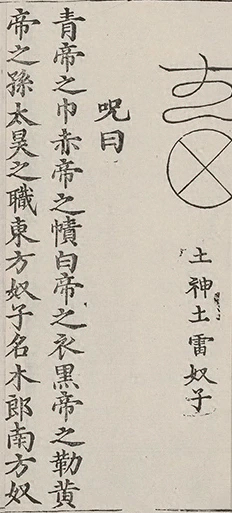 土神土雷奴子
呪曰
青帝之巾赤帝之幘白帝之衣黑帝之勒黃
帝之孫太昊之職東方奴子名木郎南方奴